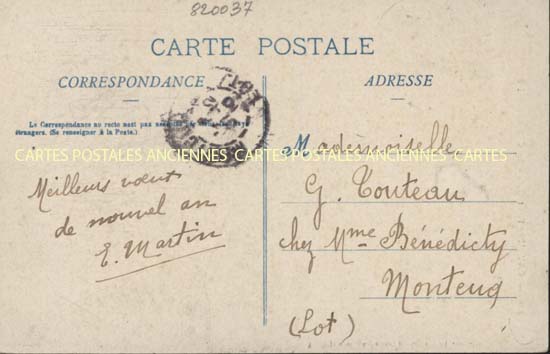 820037
CARTE POSTALE
CORRESPONDANCE
ADRESSE
La Correspondance au recto n'est pas
étrangers. (Se renseigner à la Poste.)
CARTES POSTALES ANCIENNES CARTES POSTALES ANCIENNES
Meilleurs vœux
de nouvel an
E. Martin
Mademoiselle
G. Touteau
chez Mme Bénédicty
Montcuq
(Lot)